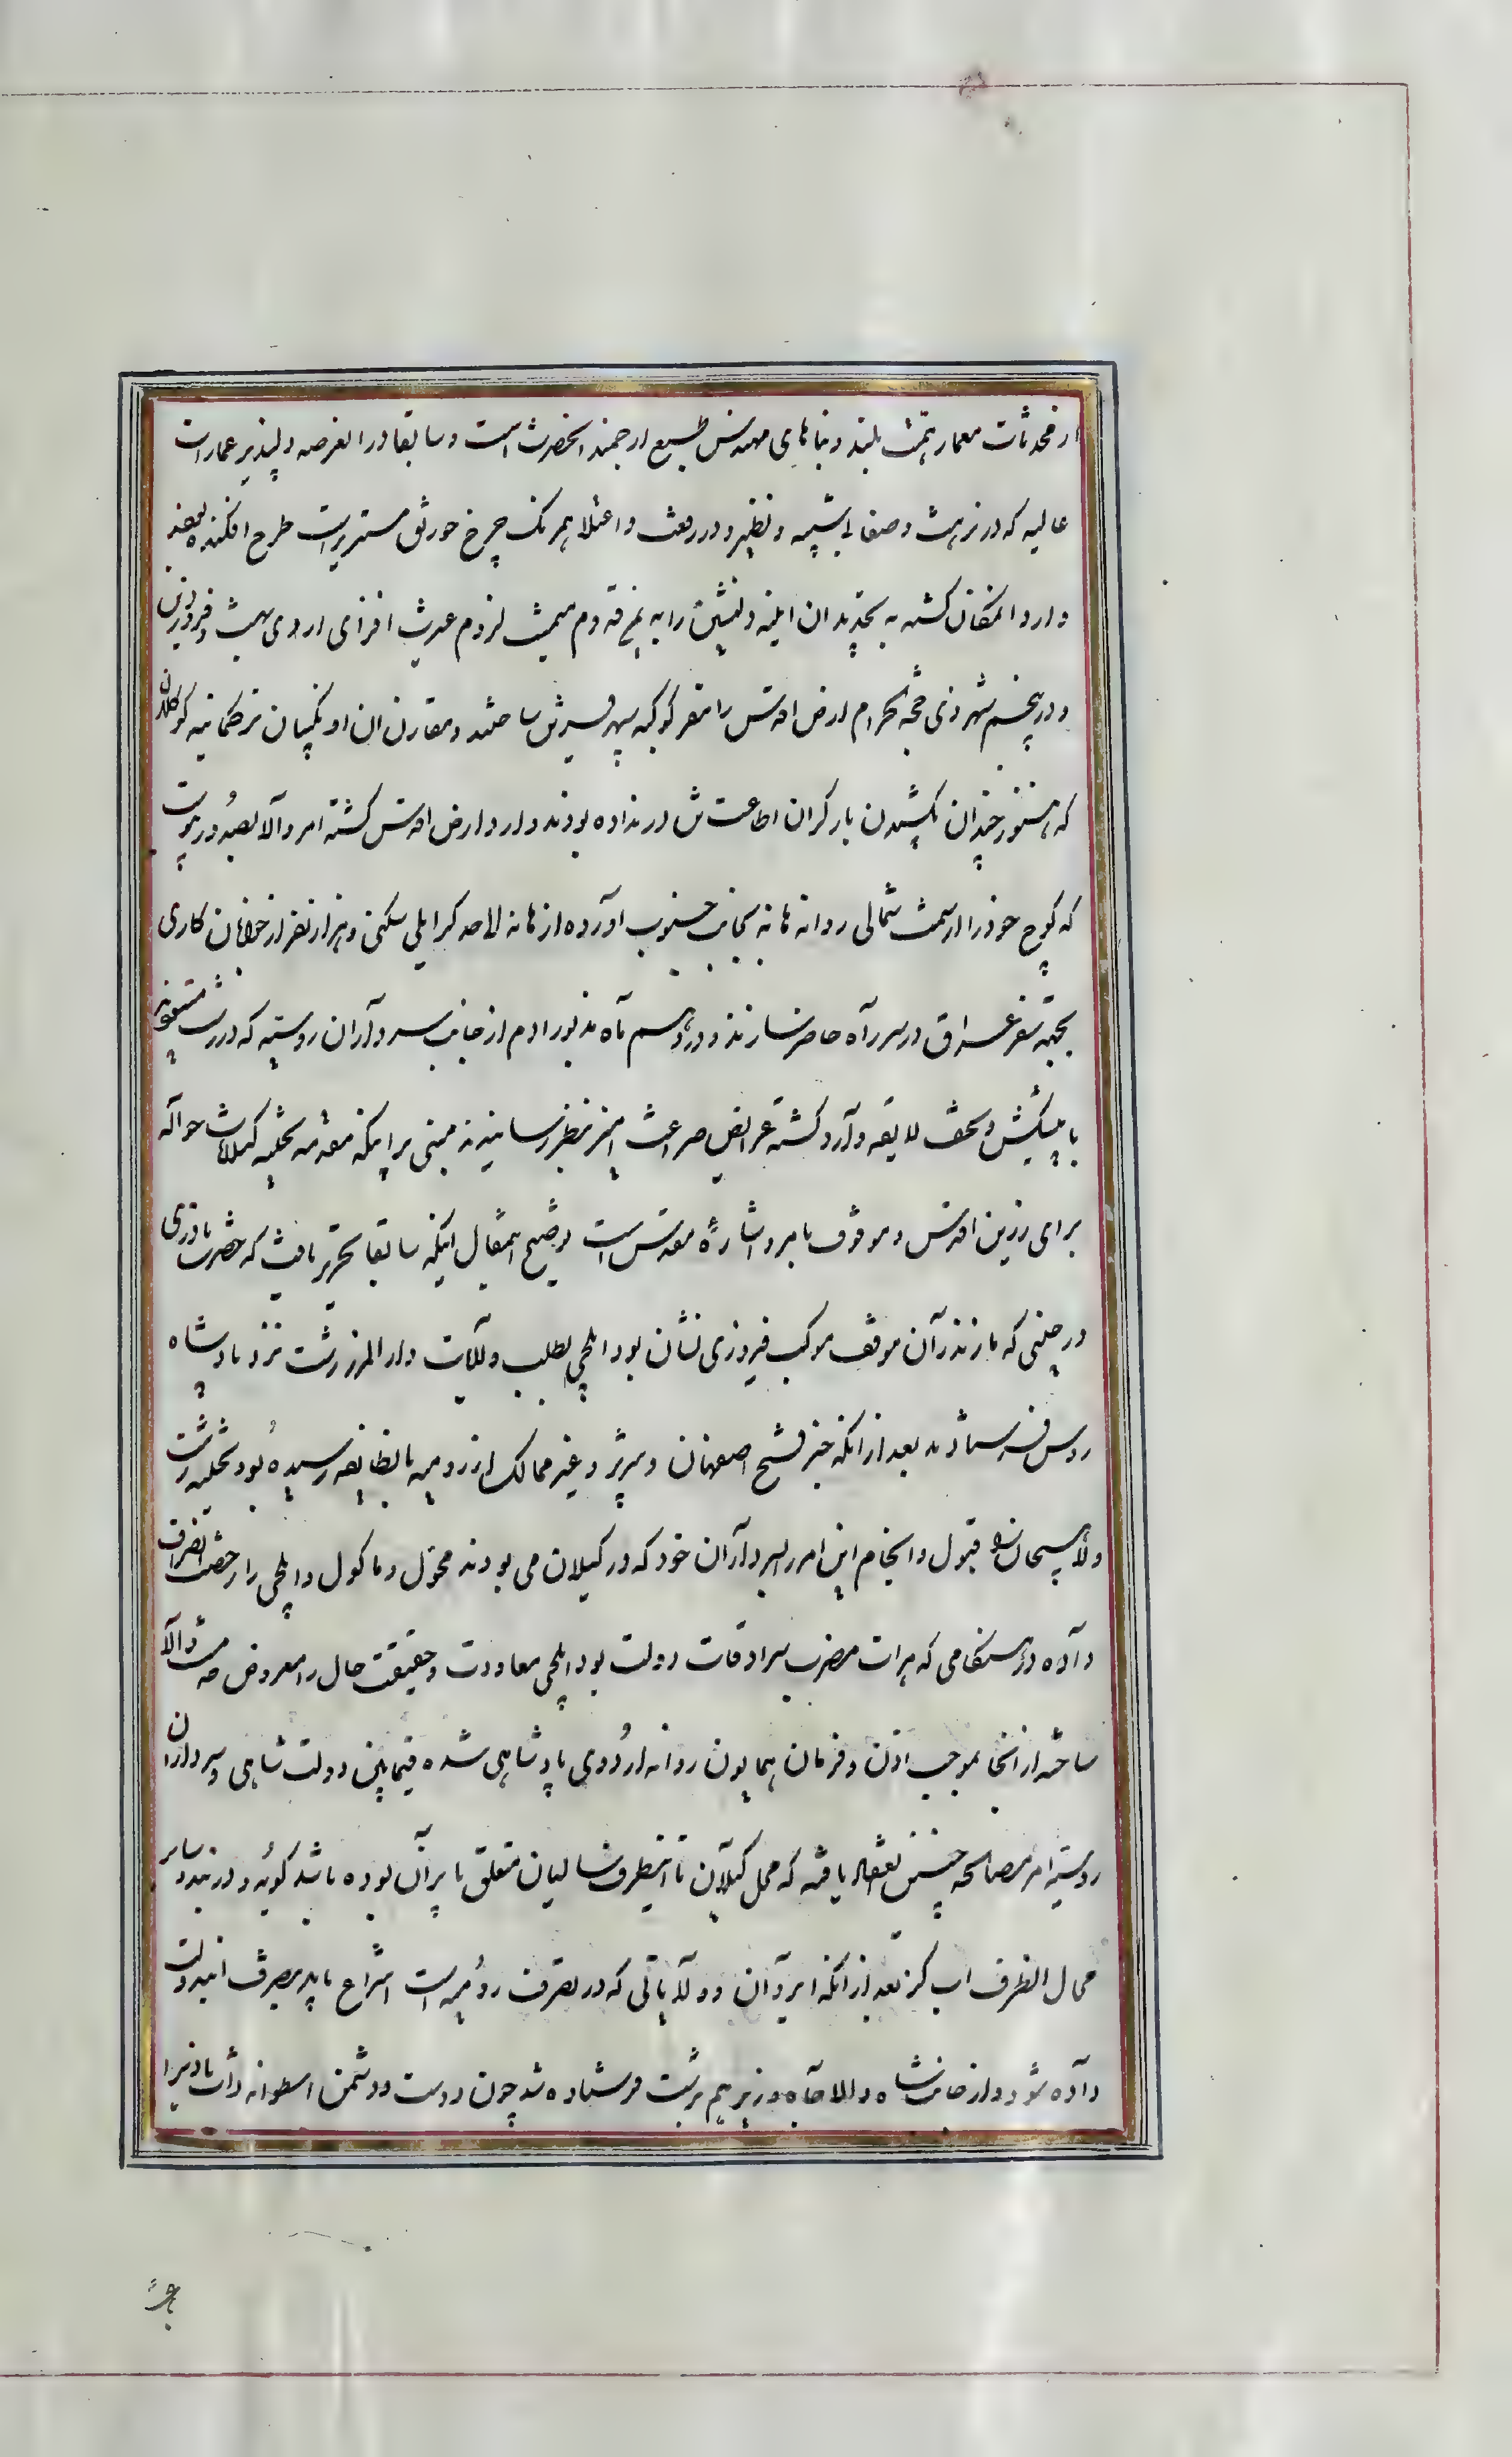 از محدثات معمار همت بلند و بناهای مهندس طبع ارجمند آنحضرت است و سابقا در آنعرصه دلپذیر عمارات
عالیه که در نزهت و صفا بی شبیه و نظیر و در رفعت و اعتلا همرنگ چرخ خورنق مستدیر است طرح افکنده بودند
وارد آنمکان گشته به تجدید آن ابنیه دلنشین را به یمن قدوم میمنت لزوم غیرت افزای اردی بهشت و فروردین
و در پنجم شهر ذی حجة الحرام ارض اقدس را مقر کوکبه سپهر ساختند و مقارن آن اونبگیان ترکمانیه کوکلان
که هنوز چندان بکشیدن بار گران اطاعت تن در نداده بودند وارد ارض اقدس گشته امر والا بصدور پیوست
که کوچ خود را از سمت شمالی روانه مانه بجانب جنوب آورده از مانه الی حد کرایلی سکنی و هزار نفر از جوانان کاری
بجهة سفر عراق در سر راه حاضر سازند و در دوسم ماه مذبور آدم از جانب سرداران روسیه که در رشت میبودند
با پیشکش و تحف لایقه وارد گشته عرایض ضراعت آمیز بنظر رسانیدند مبنی بر اینکه مقدمه تخلیه کیلانات حواله
برای رزین اقدس و موقوف بامر و اشارهٔ مقدس است توضیح اینمقال اینکه سابقا تحریر یافت که حضرت نادری
در حینی که مازندران موقف موکب فیروزی نشان بود ایلچی بطلب ولایت دار المرز رشت نزد پادشاه
روس فرستادند بعد از آنکه خبر فتح اصفهان و تبریز و غیر ممالک از رومیه بآنطایفه رسیده بود تخلیه رشت
ولاهیجان را قبول و انجام این امر را بسرداران خود که در کیلان می بودند محول و ماکول و ایلچی را رخصت انصراف
داده در هنگامی که هرات مضرب سرادقات دولت بود ایلچی معاودت و حقیقت حال را معروض خدمت والا
ساخته از آنجا بموجب اذن و فرمان همایون روانه اردوی پادشاهی شده فیمابین دولت شاهی و سرداران
روسیه امر مصالحه چنین انعقاد یافته که محل کیلان تا آنطرف سالیان متعلق بایران بوده باشد کویه و دربند و سایر
محال آنطرف آب کر بعد از آنکه ایروان و ولایاتی که در تصرف رومیه است انتزاع یابد بتصرف ایندولت
داده شود و از جانب شاه والا جاه وزیر هم برشت فرستاده شد چون دوست و دشمن اسطوانه ذات نادر را